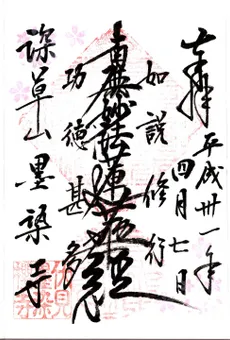 奉拝
平成卅一年
四月七日
如説修行
南無妙法蓮華経
功徳甚多
深草山墨染寺